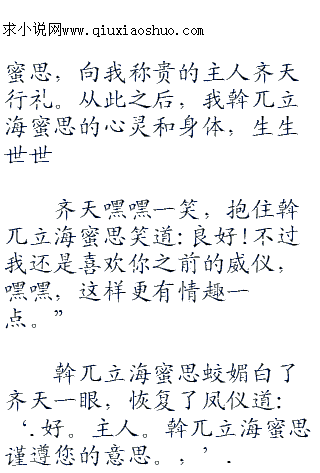 求小说网www.qiuxiaoshuo.com
蜜思，向我称贵的主人齐天
行礼。从此之后，我斡兀立
海蜜思的心灵和身体，生生
世世
齐天嘿嘿一笑，抱住斡
兀立海蜜思笑道:良好!不过
我还是喜欢你之前的威仪，
嘿嘿，这样更有情趣一
点。”
斡兀立海蜜思蛟媚白了
齐天一眼，恢复了凤仪道:
‘.好。主人。斡兀立海蜜思
谨遵您的意思。，’.